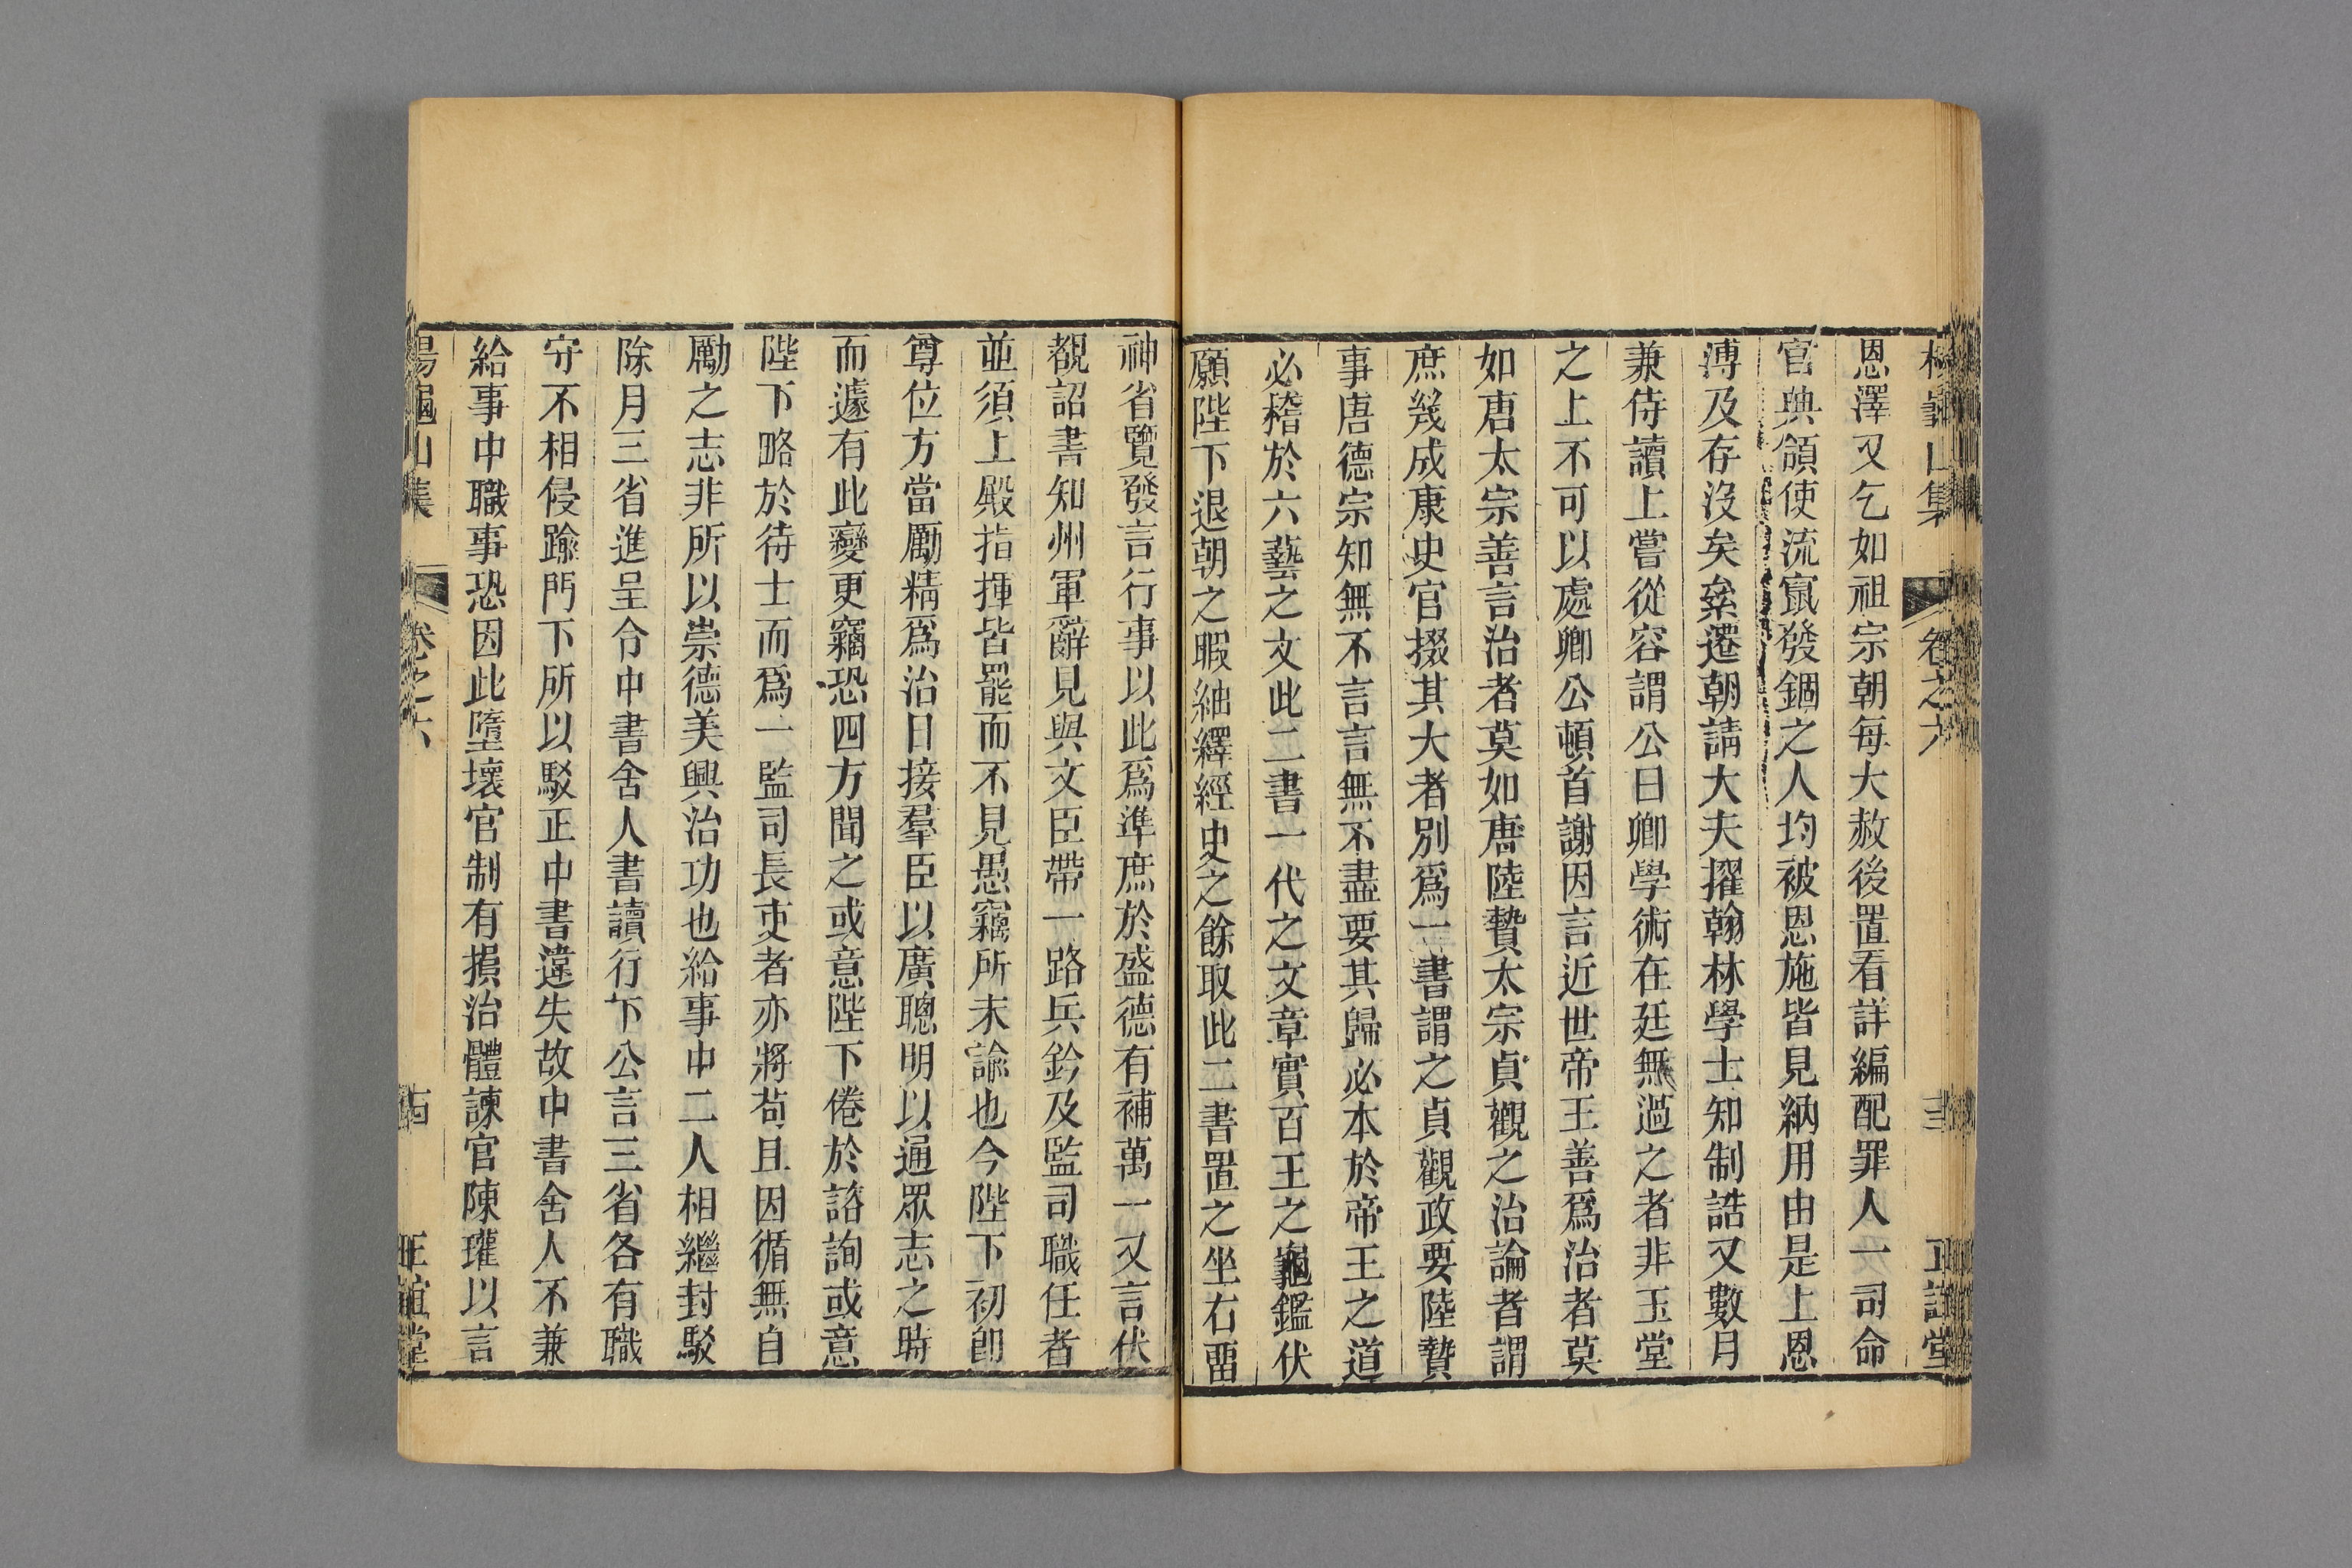 龜山集
卷之六
堂
恩澤又乞如祖宗朝每大赦後置看詳編配罪人一司命
官典領使流竄發錮之人均被恩施皆見納用由是上恩
溥及存沒矣絫遷朝請大夫擢翰林學士知制誥又數月
兼侍讀上嘗從容謂公曰卿學術在廷無過之者非玉堂
之上不可以處卿公頓首謝因言近世帝王善爲治者莫
如唐太宗善言治者莫如唐陸贄太宗貞觀之治論者謂
庶幾成康史官掇其大者別爲一書謂之貞觀政要陸贄
事唐德宗知無不言言無不盡要其歸必本於帝王之道
必稽於六藝之文此二書一代之文章實百王之龜鑑伏
願陛下退朝之暇紬繹經史之餘取此二書置之坐右畱
神省覽發言行事以此爲準庶於盛德有補萬一又言伏
覩詔書知州軍辭見與文臣帶一路兵鈐及監司職任者
並須上殿指揮皆罷而不見愚竊所未諭也今陛下初卽
尊位方當勵精爲治日接羣臣以廣聰明以通眾志之時
而遽有此變更竊恐四方聞之或意陛下倦於諮詢或意
陛下略於待士而爲一監司長吏者亦將苟且因循無自
勵之志非所以崇德美興治功也給事中二人相繼封駁
除月三省進呈令中書舍人書讀行下公言三省各有職
守不相侵踰門下所以駁正中書違失故中書舍人不兼
給事中職事恐因此墮壞官制有損治體諫官陳瓘以言
楊龜山集
卷之六
正誼堂